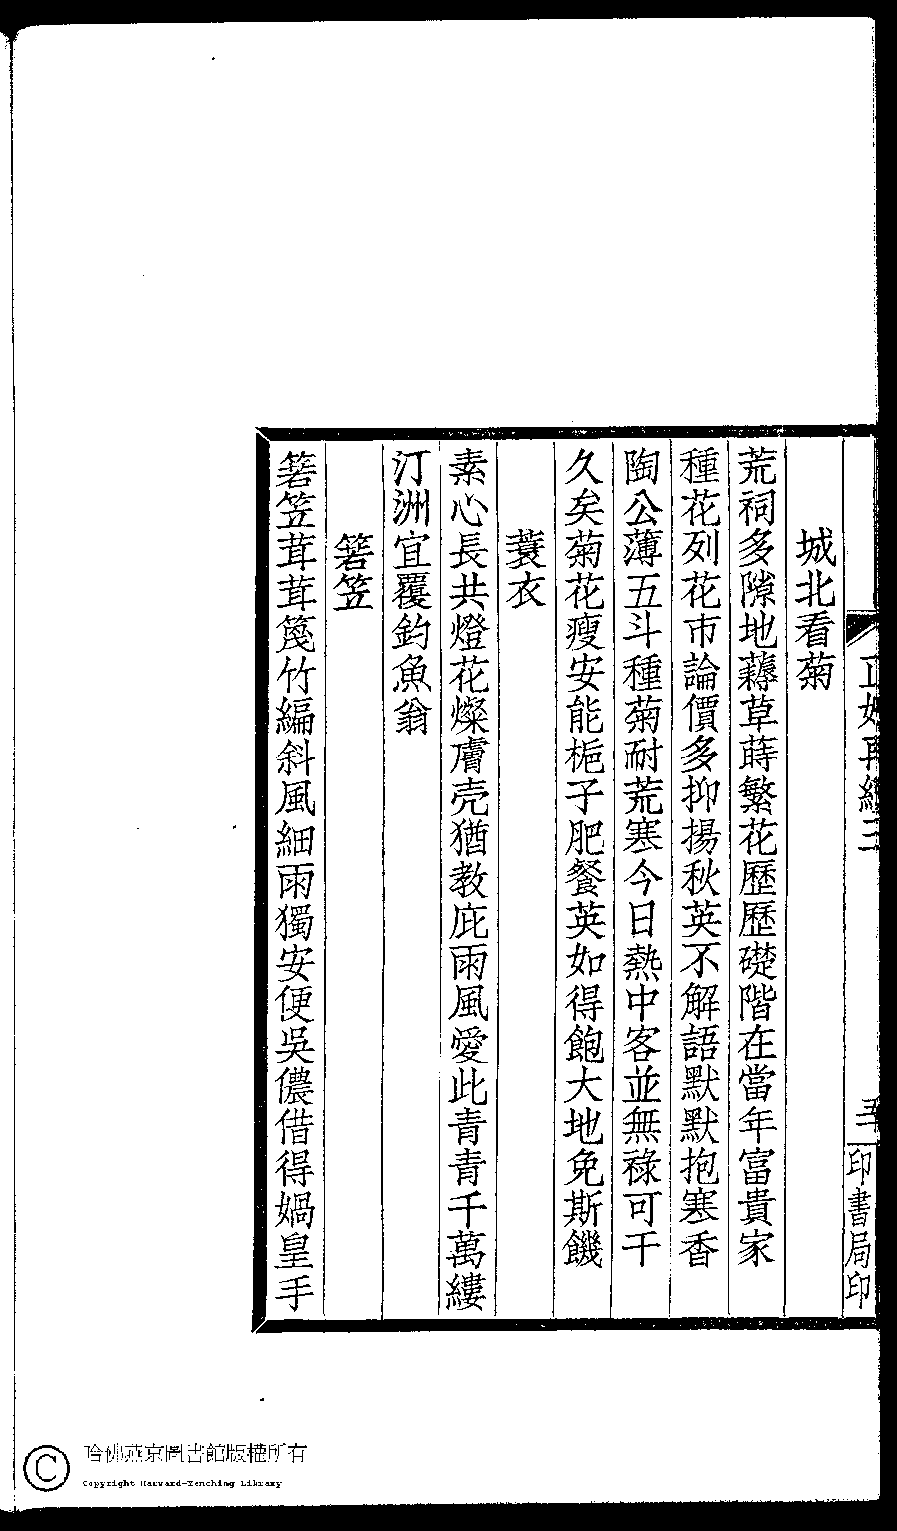 城北看菊
荒祠多隙地蘼草蒔繁花歷歷礎階在當年富貴家
種花列花市論價多抑揚秋英不解語默默抱寒香
陶公薄五斗種菊耐荒寒今日熱中客並無祿可干
久矣菊花瘦安能梔子肥餐英如得飽大地免斯饑
蓑衣
素心長共燈花燦膚壳猶教庇雨風愛此青青千萬縷
汀洲宜覆釣魚翁
箬笠
箬笠茸茸篾竹編斜風細雨獨安便吳儂借得媧皇手
再續三
印書局印
哈佛燕京圖書館版權所有
Copyright Harvard-Yenching Library